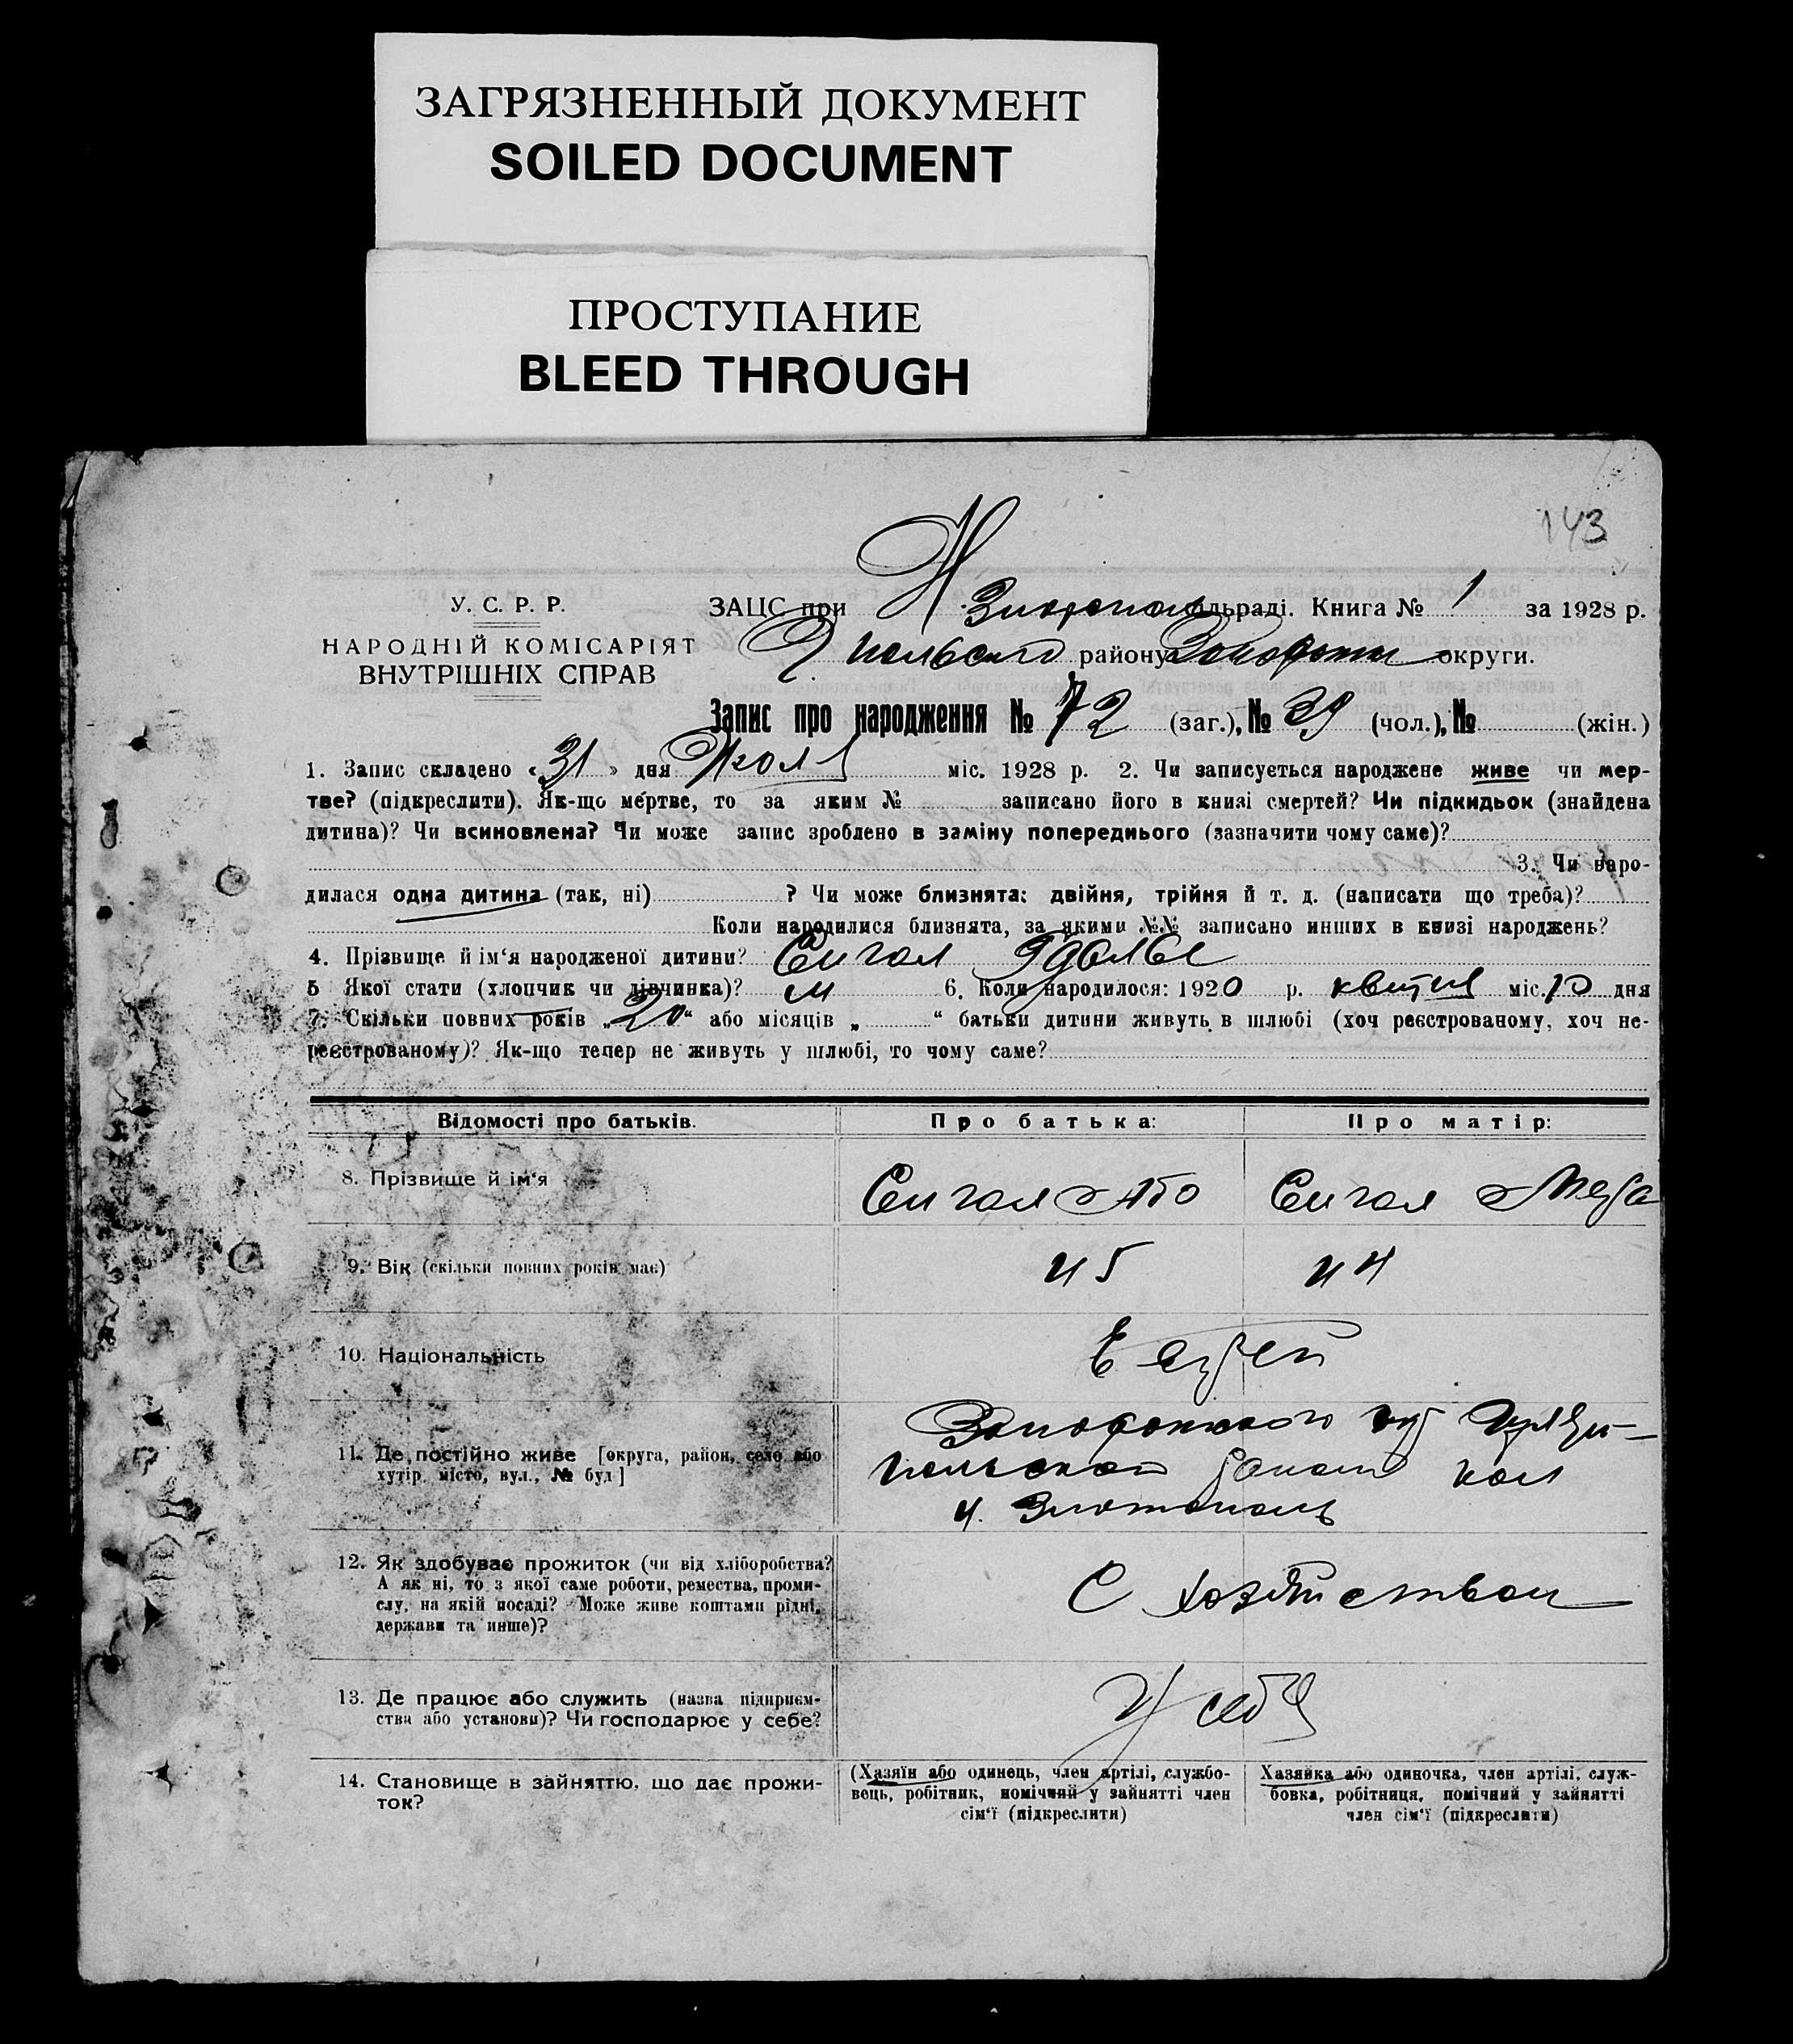 ЗАГРЯЗНЕННЫЙ ДОКУМЕНТ
SOILED DOCUMENT
ПРОСТУПАНИЕ
BLEED THROUGH
143
У. С. Р. Р.
НАРОДНІЙ КОМІСАРІЯТ
ВНУТРІШНІХ СПРАВ
ЗАЦС при Н. сільраді. Книга № 1 за 1928 р.
району округи.
Запис про народження № 72 (заг.), № 39 (чол.), № (жін.)
1. Запис складено «31» дня міс. 1928 р. 2. Чи записується народжене живе чи мер-
тве? (підкреслити). Як-що мертве, то за яким № записано його в книзі смертей? Чи підкидьок (знайдена
дитина)? Чи всиновлена? Чи може запис зроблено в заміну попереднього (зазначити чому саме)?
3. Чи наро-
дилася одна дитина (так, ні) ? Чи може близнята: двійня, трійня й т. д. (написати що треба)?
Коли народилися близнята, за якими №№ записано инших в книзі народжень?
4. Прізвище й ім‘я народженої дитини? Сигал
5 Якої стати (хлопчик чи дівчинка)? м 6. Коли народилося: 1920 р. квітня міс. 10 дня
7. Скільки повних років „20“ або місяців „ “ батьки дитини живуть в шлюбі (хоч реєстрованому, хоч не-
реєстрованому)? Як-що тепер не живуть у шлюбі, то чому саме?
Відомості про батьків. Про батька: Про матір:
8. Прізвище й ім‘я Сигал Або Сигал
9. Вік (скільки повних років має) 45 44
10. Національність Еврей
11. Де постійно живе [округа, район, село або
хутір, місто, вул., № буд]
12. Як здобуває прожиток (чи від хліборобства?
А як ні, то з якої саме роботи, ремества, проми-
слу, на якій посаді? Може живе коштами рідні,
держави та инше)?
С хозяйством
13. Де працює або служить (назва підприєм-
ства або установи)? Чи господарює у себе?
У себя
14. Становище в зайняттю, що дає прожи-
ток?
(Хазяїн або одинець, член артілі, службо-
вець, робітник, помічний у зайнятті член
сім‘ї (підкреслити)
Хазяйка або одиночка, член артілі, служ-
бовка, робітниця, помічний у зайнятті
член сім‘ї (підкреслити)